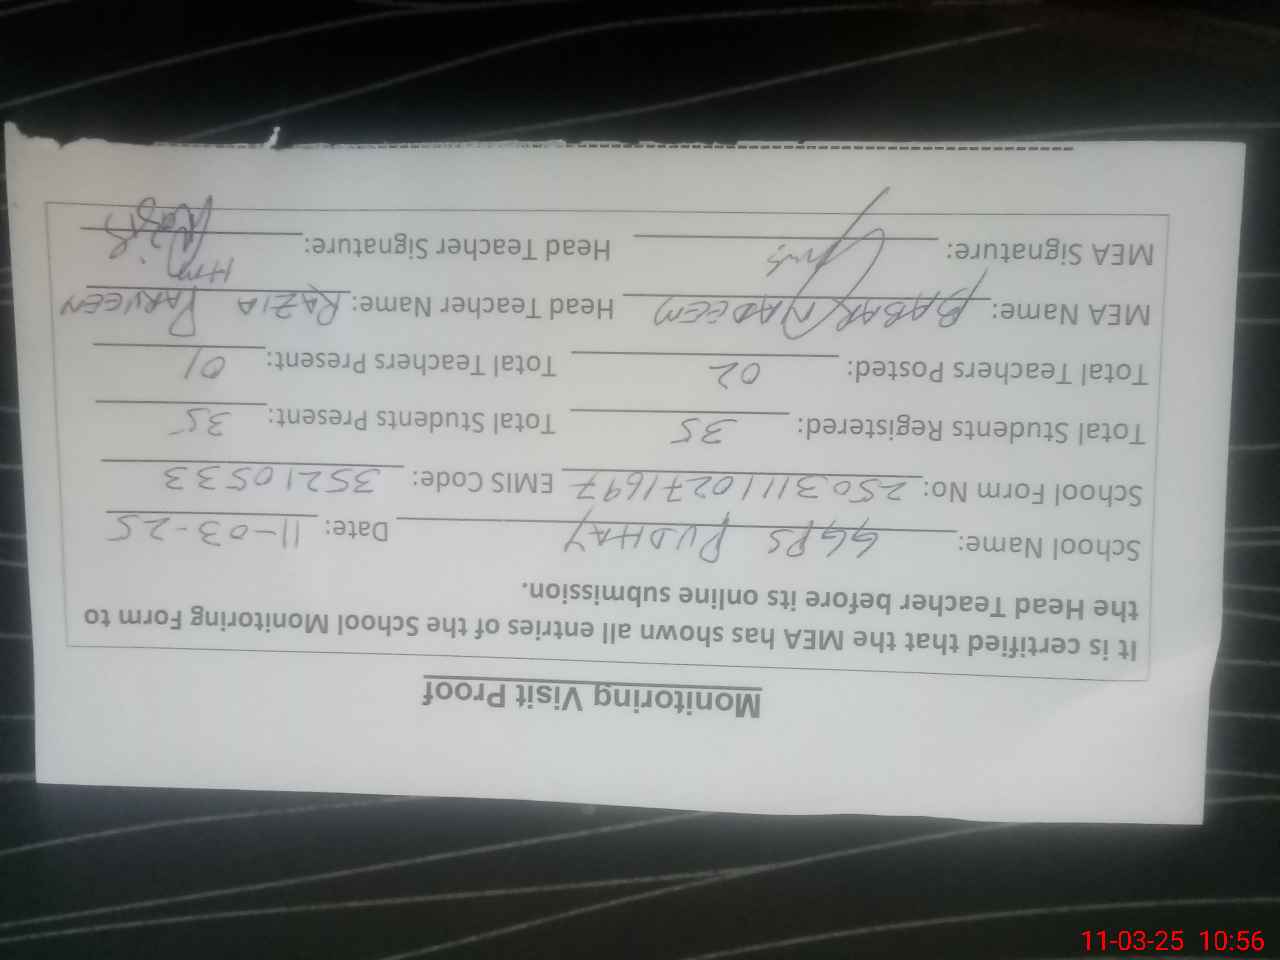 Monitoring Visit Proof
It is certified that the MEA has shown all entries of the School Monitoring Form to
the Head Teacher before its online submission.
School Name: GGPS PUDHAY Date: 11-03-25
School Form No: 25031110271697 EMIS Code: 35210533
Total Students Registered: 35 Total Students Present: 35
Total Teachers Posted: 02 Total Teachers Present: 01
MEA Name: BABAR NADEEM Head Teacher Name: RAZIA PARVEEN
HM
MEA Signature: Head Teacher Signature: Razia
11-03-25 10:56